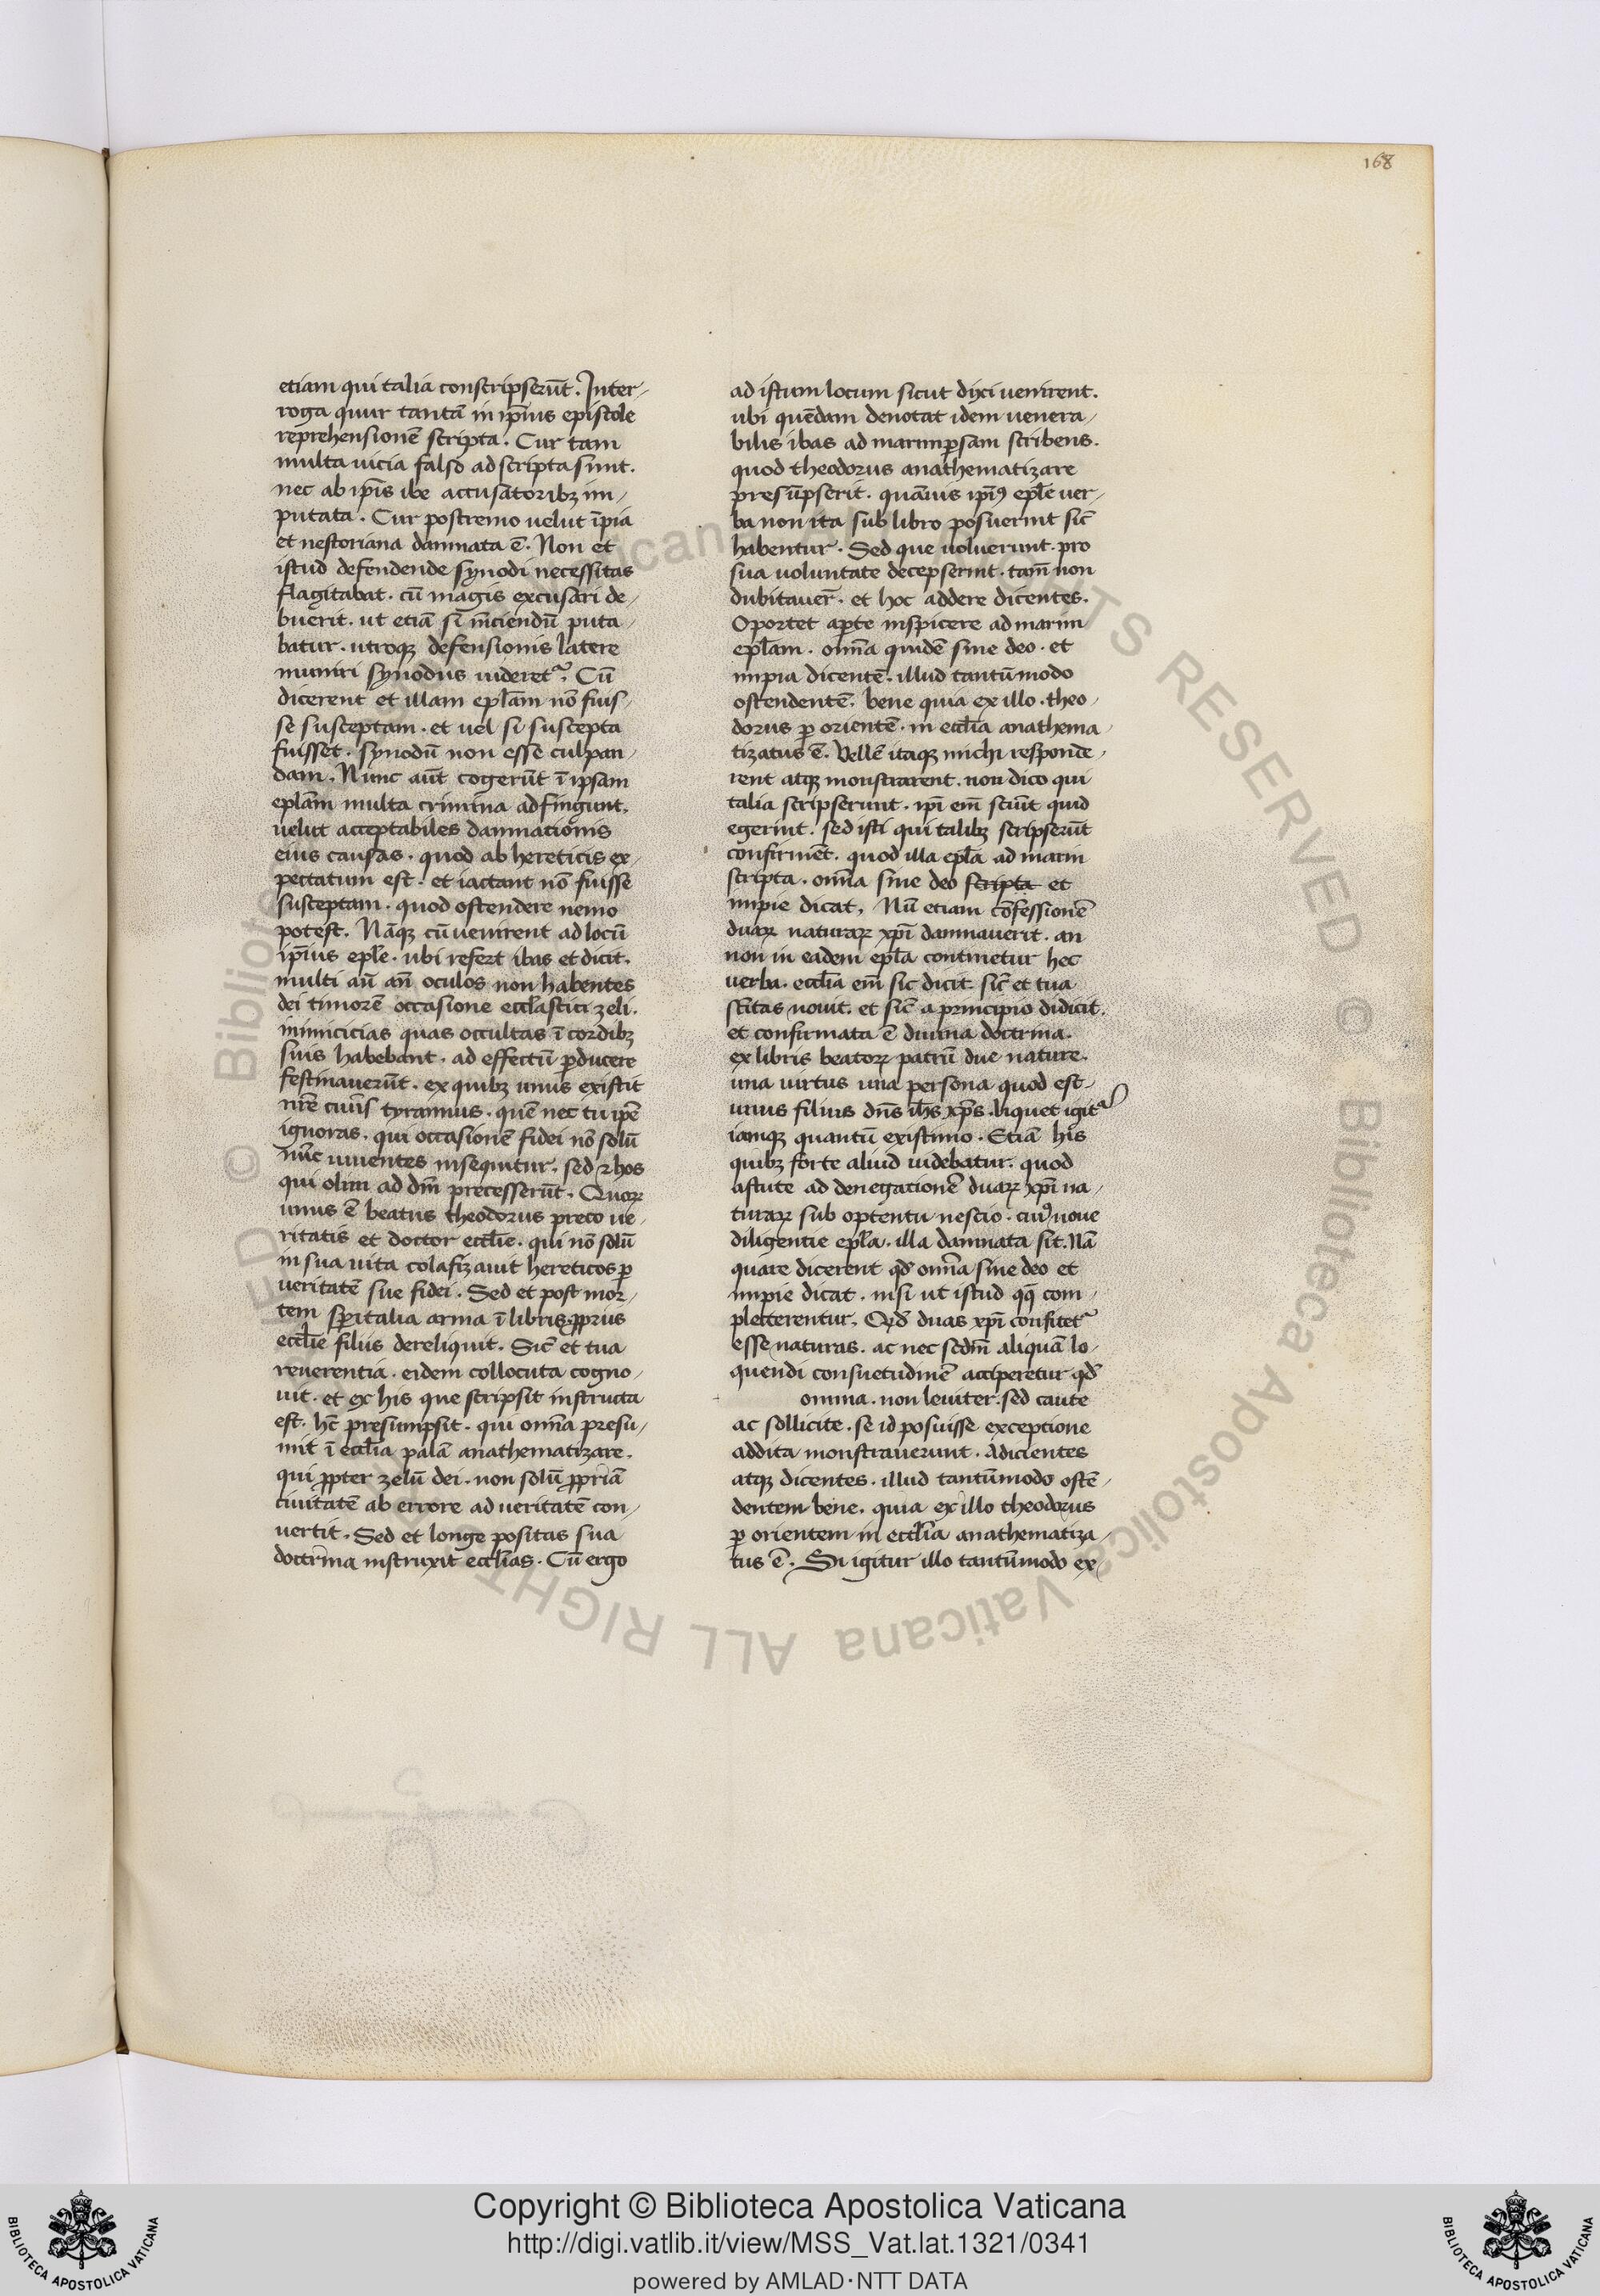 168
etiam qui talia conscripserūt. Inter-
roga quur tantā in ip̄ius epistole
reprehensionē scripta. Cur tam
multa uicia falso ad scripta sunt.
nec ab ip̄is ibe accusatoribꝫ im-
putata. Cur postremo uelut īpia
et nestoriana damnata ē. Non et
istud defendende synodi necessitas
flagitabat. cū magis excusari de-
buerit. ut etiā si īiciendū puta-
batur. utroqꝫ defensionis latere
muniri synodus uideretᷣ. Cū
dicerent et illam epl̄am nō fuis-
se susceptam. et uel si suscepta
fuisset. synodū non esse culpan-
dam. Nunc aūt cogerūt ī ipsam
epl̄am multa crimina adfingunt.
uelut acceptabiles damnationis
eius causas. quod ab hereticis ex-
pectatum est. et iactant nō fuisse
susceptam. quod ostendere nemo
potest. Nāqꝫ cū uenirent ad locū
ip̄ius epl̄e. ubi refert ibas et dicit.
multi aūt añ oculos non habentes
dei timorē occasione eccl̄astici zeli.
inimicicias quas occultas ī cordibꝫ
suis habebant. ad effectū ꝑducere
festinauerūt. ex quibꝫ unus existit
nr̄e ciuis tyrannus. quē nec tu ip̄e
ignoras. qui occasionē fidei nō solū
nūc uiuentes insequitur. sed ⁊ hos
qui olim ad dm̄ precesserūt. Quoꝝ
unus ē beatus theodorus preco ue-
ritatis et doctor eccl̄ie. qui nō solū
in sua uita colafizauit hereticos ꝑ
ueritatē sue fidei. Sed et post mor-
tem sp̄italia arma ī libris ꝓprius
eccl̄ie filiis dereliquit. Sic̄ et tua
reuerentia. eidem collocuta cogno-
uit. et ex his que scripsit instructa
est. hc̄ presumpsit. qui om̄a presu-
mit ī eccl̄ia palā anathematizare.
qui ꝓpter zelū dei. non solū ꝓpriā
ciuitatē ab errore ad ueritatē con-
uertit. Sed et longe positas sua
doctrina instruxit eccl̄ias. Cū ergo
ad istum locum sicut dixi uenirent.
ubi quēdam denotat idem uenera-
bilis ibas ad marim ꝑsam scribens.
quod theodorus anathematizare
presūpserit. quāuis ip̄iꝰ epl̄e uer-
ba non ita sub libro posuerint sic̄
habentur. Sed que uoluerunt. pro
sua uoluntate decepserint. tam̄ non
dubitauer̄. et hoc addere dicentes.
Oportet aꝑte inspicere ad marim
epl̄am. om̄a quidē sine deo. et
impia dicentē. illud tantūmodo
ostendentē. bene quia ex illo. theo-
dorus ꝑ orientē. in eccl̄ia anathema-
tizatus ē. Vellē itaqꝫ michi responde-
rent atqꝫ monstrarent. non dico qui
talia scripserunt. ip̄i em̄ sciūt quid
egerint. sed isti qui talibꝫ scripserūt
confirmēt. quod illa epl̄a ad marin
scripta. om̄a sine deo scripta et
impie dicat. Nū etiam cōfessionē
duaꝝ naturaꝝ xp̄i damnauerit. an
non in eadem epl̄a continetur hec
uerba. eccl̄ia em̄ sic dicit sic̄ et tua
sc̄itas nouit. et sic̄ a principio didicit.
et confirmata ē diuina doctrina.
ex libris beatoꝝ patrū due nature.
una uirtus una persona quod est-
unus filius dn̄s ih̄s xp̄s. liquet igitᷣ
iamqꝫ quantū existimo. Etiā his
quibꝫ forte aliud uidebatur. quod
astute ad denegationē duaꝝ xp̄i na-
turaꝝ sub optentu nescio. cuiꝰ noue
diligentie epl̄a. illa damnata sit. Nā
quare dicerent qđ om̄ia sine deo et
impie dicat. nisi ut istud qq̄ com-
plecterentur. Qđ duas xp̄i confitetᷣ
esse naturas. ac nec sedm̄ aliquā lo-
quendi consuetudinē acciperetur qđ
omnia. non leuiter. sed caute
ac sollicite. se id posuisse exceptione
addita monstrauerunt. Adicientes
atqꝫ dicentes. illud tantūmodo ostē-
dentem bene. quia ex illo theodorus
ꝑ orientem in eccl̄ia anathematiza-
tus ē. Si igitur illo tantūmodo ex-
Copyright © Biblioteca Apostolica Vaticana
http://digi.vatlib.it/view/MSS_Vat.lat.1321/0341
powered by AMLAD·NTT DATA
BIBLIOTECA APOSTOLICA VATICANA
BIBLIOTECA APOSTOLICA VATICANA